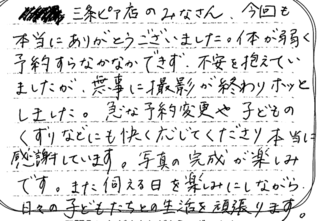 三条ピア店のみなさん、今回も
本当にありがとうございました。体が弱く
予約すらなかなかできず、不安を抱えてい
ましたが、無事に撮影が終わりホッと
しました。急な予約変更や子どもの
ぐずりなどにも快くだしてくださり本当に
感謝しています。写真の完成が楽しみ
です。また伺える日を楽しみにしながら、
日々の子どもたちとの生活を頑張ります。